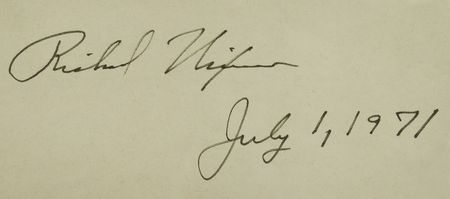 Richard Nixon
July 1, 1971